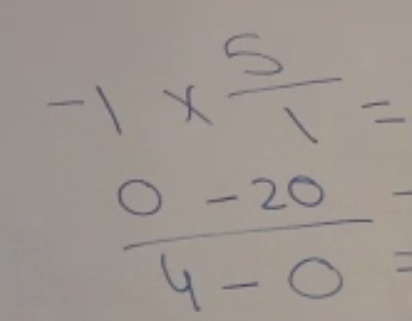 -1 × 5/1 =
0 - 20 / 4 - 0 =